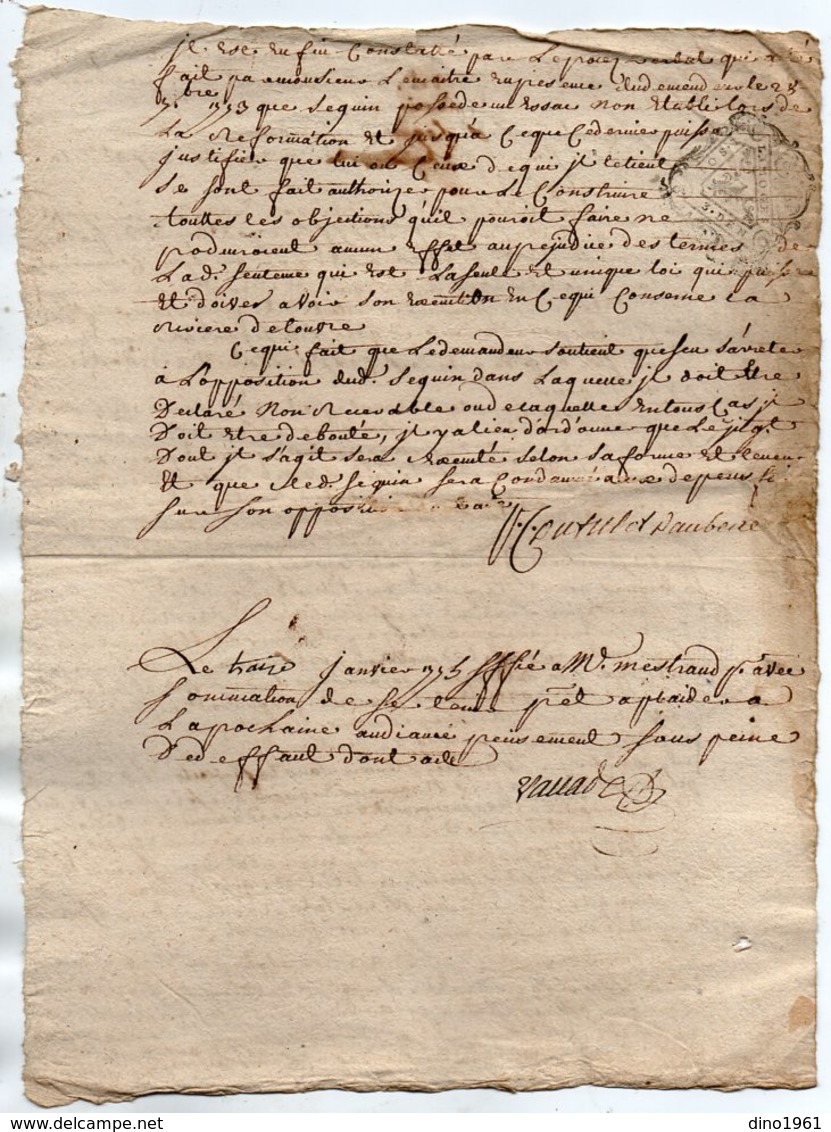 jl est enfin Constatté par le procez verbal qui a eté
fait par monsieur Lemaitre en presence dud demendeur le 23
bre 1753 que seguin possede un Essac non Etabli lors de
La Reformation Et jusqu'a Ceque Ce dernier puisse
justifier que lui ou Ceux de qui jl le tient
Se sont fait authorizer pour le Construire
touttes les objections qu'il pouroit faire ne
produiroient aucun Effet au prejudice des termes de
Lad. Sentence qui Est La seule Et unique loi qui puisse
Et doive avoir son Execution En Cequi Conserne La
Riviere de touvre
Cequi fait que Le demandeur soutient que sen s'arreter
à L'opposition dud. Seguin dans Laquelle jl doit Etre
Declaré Non Recevable ou de laquelle En tous Cas jl
Doit Etre debouté, jl y a lieu d'ordonner que Le jugt
Dont jl s'agit sera Executé selon sa forme Et teneur
Et que Led. Seguin sera Condamné aux depens
sur son opposition
Le traize janvier 1755 signiffié a Me. mestraud pr. avec
sommation de se tenir prêt a plaider a
La prochaine audiance pensement sous peine
De deffaut dont acte
vallade